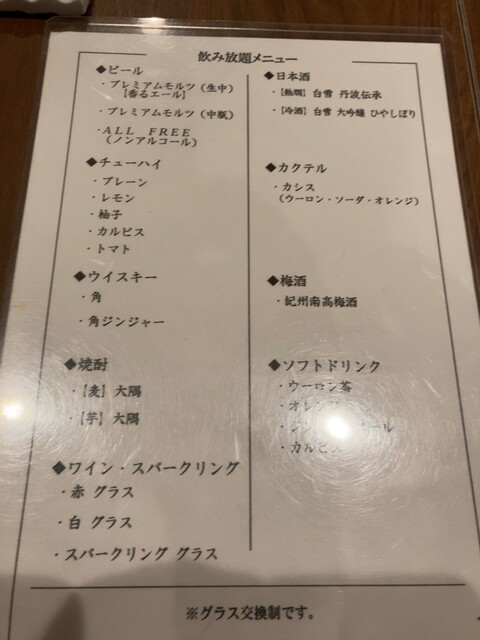 飲み放題メニュー
◆ビール
・プレミアムモルツ（生中）
【香るエール】
・プレミアムモルツ（中瓶）
・ALL FREE
（ノンアルコール）
◆チューハイ
・プレーン
・レモン
・柚子
・カルピス
・トマト
◆ウイスキー
・角
・角ジンジャー
◆焼酎
・【麦】大隅
・【芋】大隅
◆ワイン・スパークリング
・赤 グラス
・白 グラス
・スパークリング グラス
◆日本酒
・【熱燗】白雪 丹波伝承
・【冷酒】白雪 大吟醸 ひやしぼり
◆カクテル
・カシス
（ウーロン・ソーダ・オレンジ）
◆梅酒
・紀州南高梅酒
◆ソフトドリンク
・ウーロン茶
・オレンジ
・カルピス
※グラス交換制です。